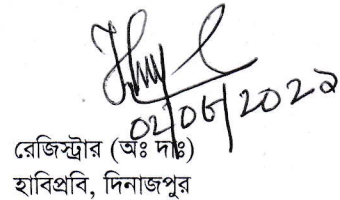 02/06/2022
রেজিস্ট্রার (অঃ দাঃ)
হাবিপ্রবি, দিনাজপুর